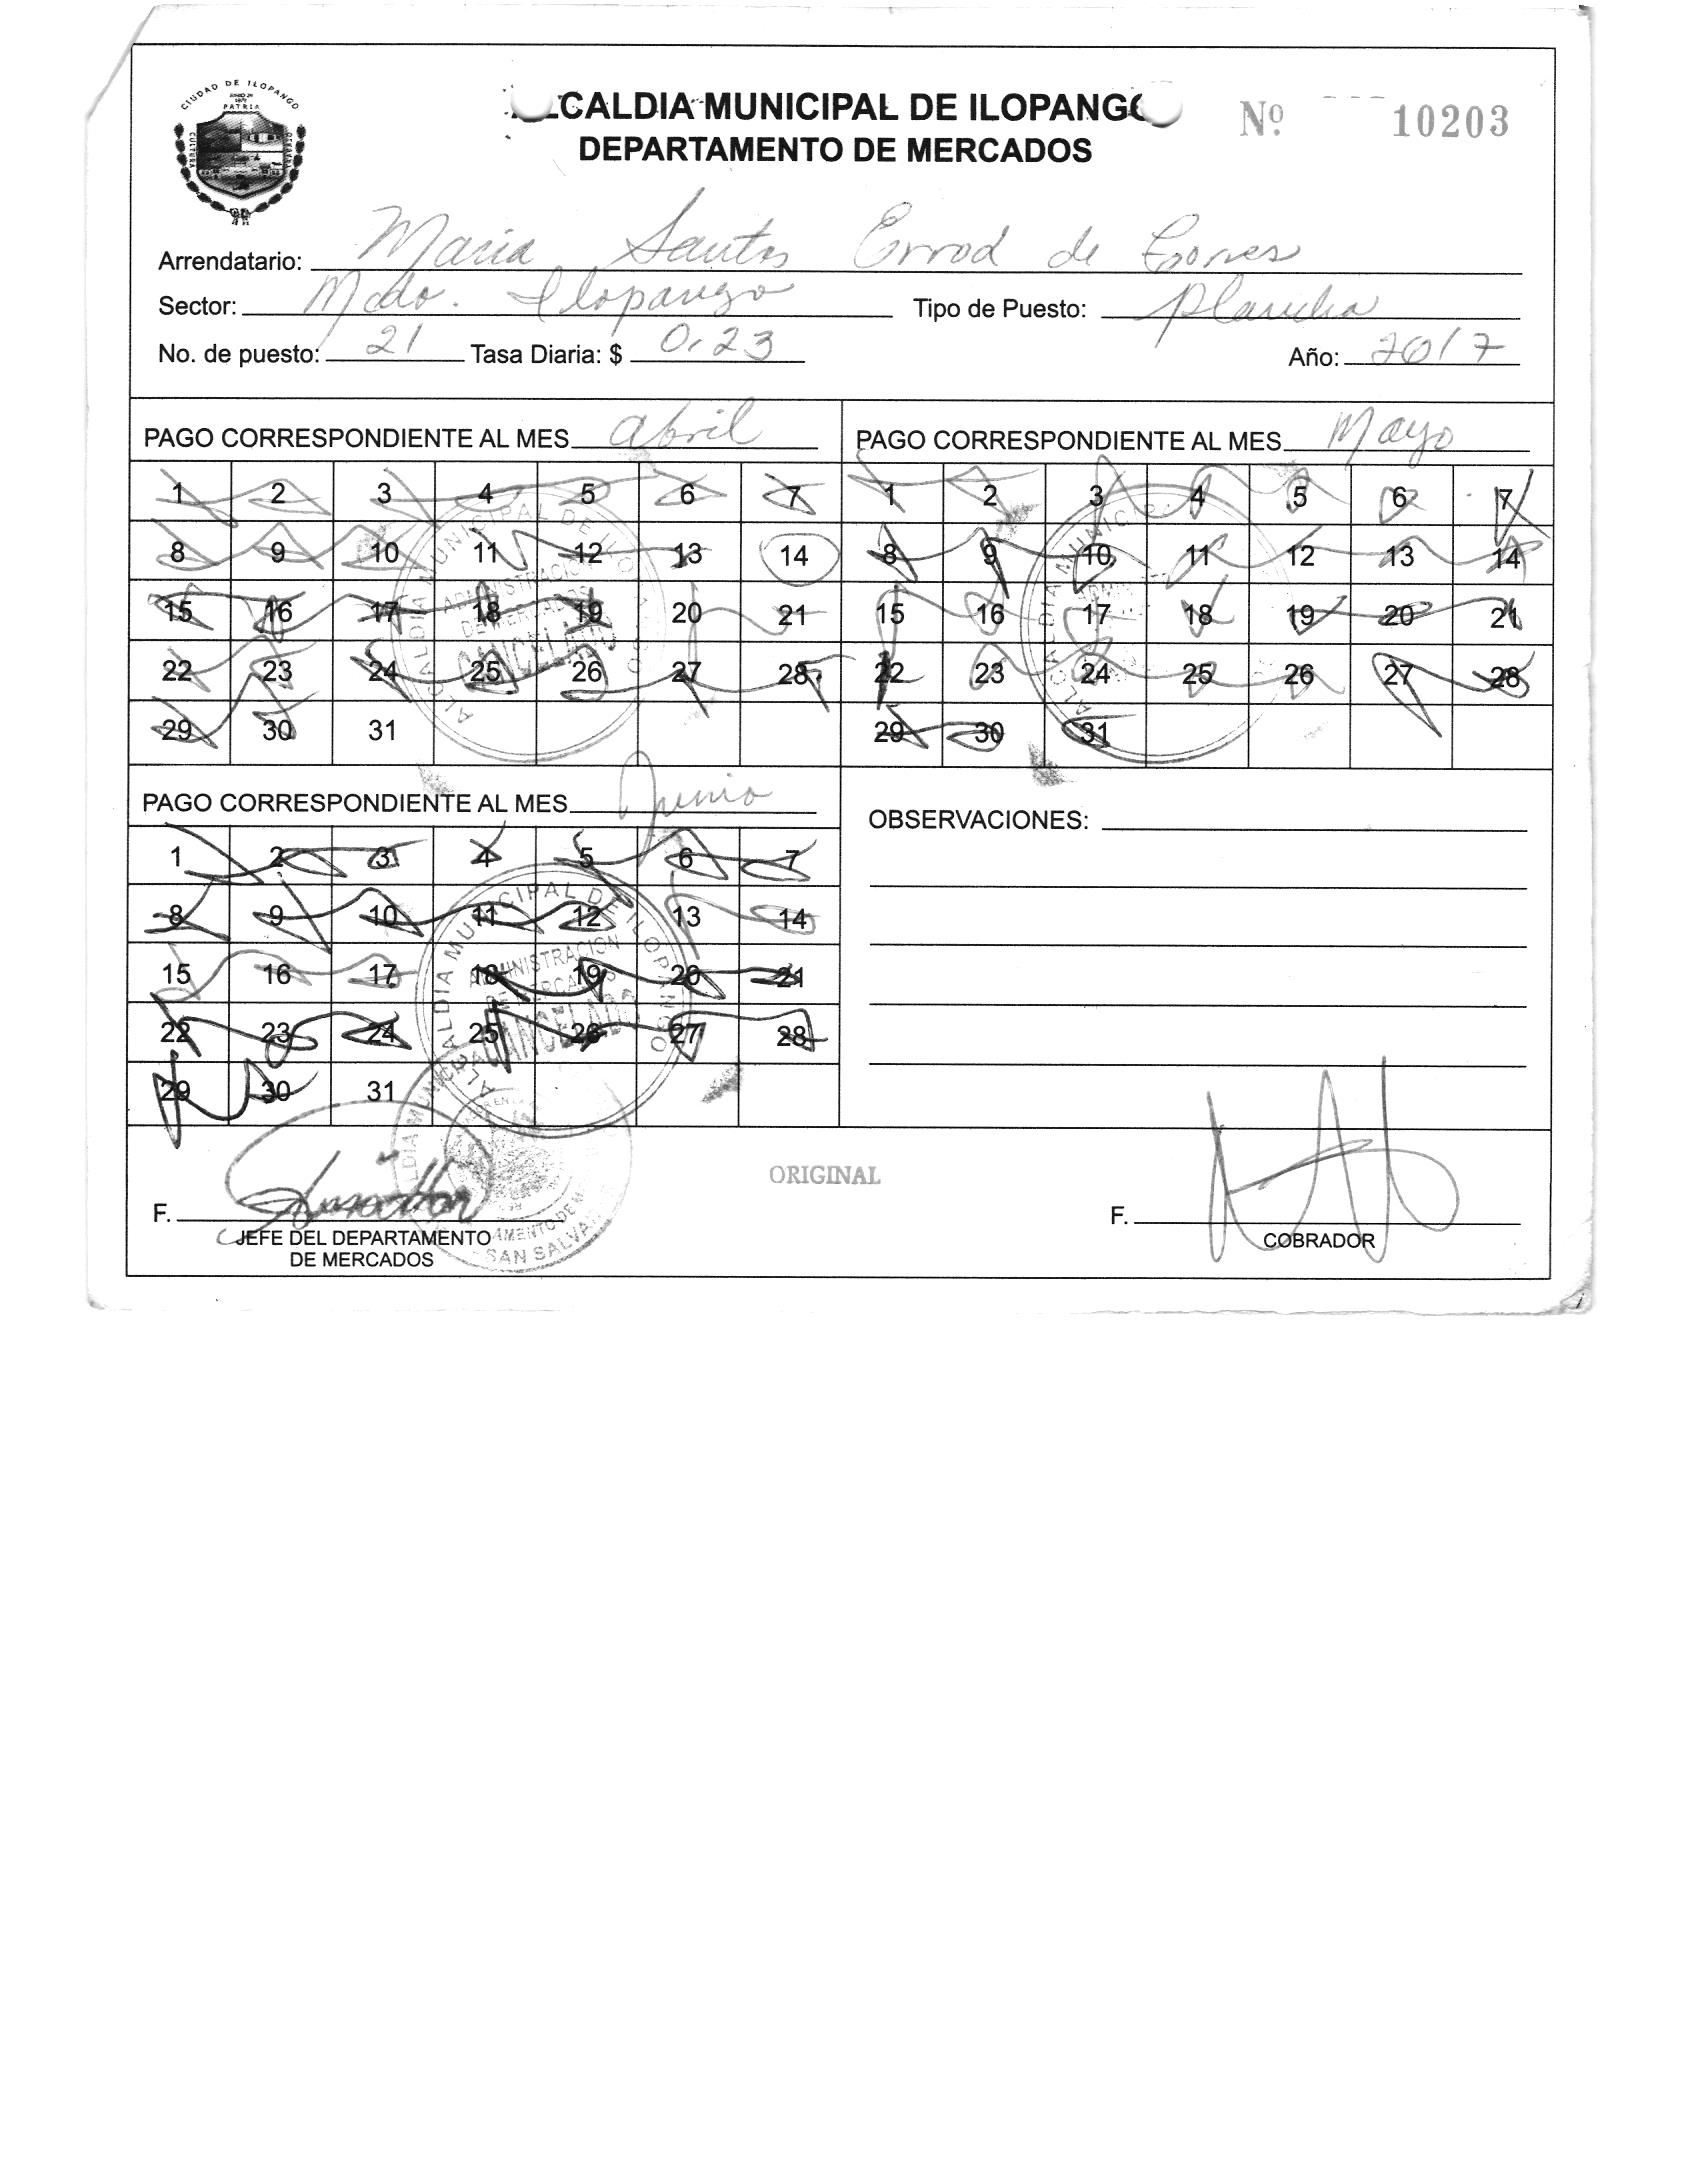 CIUDAD DE ILOPANGO
PATRIA
CULTURA
ALCALDIA MUNICIPAL DE ILOPANGO
Nº 10203
DEPARTAMENTO DE MERCADOS
Arrendatario: Maria Santos Errod de
Sector: Mcdo. Ilopango Tipo de Puesto: Plancha
No. de puesto: 21 Tasa Diaria: $ 0.23 Año: 2017
PAGO CORRESPONDIENTE AL MES abril
1 2 3 4 5 6 7
8 9 10 11 12 13 14
15 16 17 18 19 20 21
22 23 24 25 26 27 28
29 30 31
ALCALDIA MUNICIPAL DE ILOPANGO
ADMINISTRACION
DE MERCADOS
CANCELADO
PAGO CORRESPONDIENTE AL MES Mayo
1 2 3 4 5 6 7
8 9 10 11 12 13 14
15 16 17 18 19 20 21
22 23 24 25 26 27 28
29 30 31
ALCALDIA MUNICIPA
PAGO CORRESPONDIENTE AL MES Junio
1 2 3 4 5 6 7
8 9 10 11 12 13 14
15 16 17 18 19 20 21
22 23 24 25 26 27 28
29 30 31
ALCALDIA MUNICIPAL DE ILOPANGO
ADMINISTRACION
DE MERCADOS
CANCELADO
OBSERVACIONES:
ORIGINAL
F.
JEFE DEL DEPARTAMENTO
DE MERCADOS
SAN SALVA
F.
COBRADOR